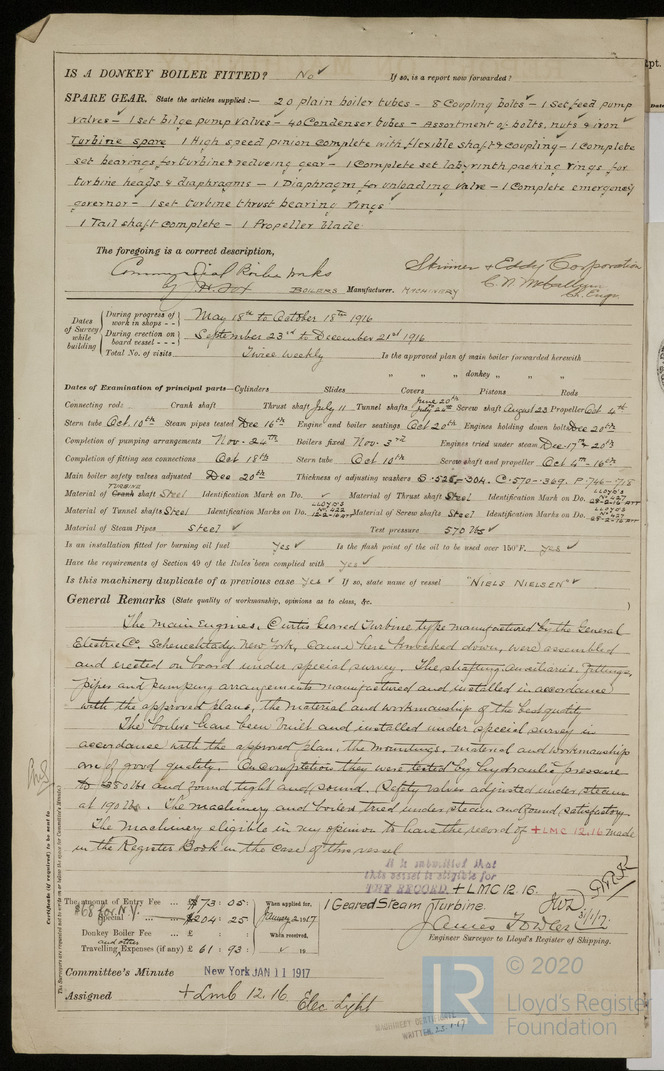 IS A DONKEY BOILER FITTED? No ✓ If so, is a report now forwarded?
SPARE GEAR. State the articles supplied:— 20 plain boiler tubes – 8 Coupling bolts ✓ – 1 Set feed pump
valves – 1 set bilge pump valves – 40 Condenser tubes – Assortment of bolts, nuts & iron
Turbine spare 1 High speed pinion complete with flexible shaft & coupling – 1 Complete
set bearings for turbine & reducing gear – 1 Complete set labyrinth packing rings for
turbine heads & diaphragms – 1 Diaphragm for unloading valve – 1 Complete emergency
governor – 1 set turbine thrust bearing rings ✓
1 Tail shaft complete – 1 Propeller blade
The foregoing is a correct description,
Commercial Boiler Works Skinner & Eddy Corporation
by BOILERS Manufacturer. MACHINERY Ch. Engr.
Dates of Survey while building
During progress of work in shops - - May 18th to October 18th 1916
During erection on board vessel - - - September 23rd to December 21st 1916
Total No. of visits Twice weekly Is the approved plan of main boiler forwarded herewith
" " " donkey " " "
Dates of Examination of principal parts—Cylinders Slides Covers Pistons Rods
Connecting rods Crank shaft Thrust shaft July 11 Tunnel shafts June 20th July 24th Screw shaft August 23 Propeller Oct 4th
Stern tube Oct 10th Steam pipes tested Dec 16th Engine and boiler seatings Oct 20th Engines holding down bolts Dec 20th
Completion of pumping arrangements Nov. 24th Boilers fixed Nov. 3rd Engines tried under steam Dec. 17th & 20th
Completion of fitting sea connections Oct 18th Stern tube Oct 10th Screw shaft and propeller Oct 4th – 16th
Main boiler safety valves adjusted Dec 20th Thickness of adjusting washers S .525 – .304. C .570 – .369. P .746 – .718
Material of Crank TURBINE shaft Steel Identification Mark on Do. ✓ Material of Thrust shaft Steel Identification Mark on Do. LLOYD'S No 427
Material of Tunnel shafts Steel Identification Marks on Do. LLOYD'S No 422 Material of Screw shafts Steel Identification Marks on Do. LLOYD'S No 427
Material of Steam Pipes Steel ✓ Test pressure 570 lbs ✓
Is an installation fitted for burning oil fuel yes ✓ Is the flash point of the oil to be used over 150°F. yes ✓
Have the requirements of Section 49 of the Rules been complied with yes ✓
Is this machinery duplicate of a previous case yes ✓ If so, state name of vessel "NIELS NIELSEN" ✓
General Remarks (State quality of workmanship, opinions as to class, &c. )
The Main Engines, Curtis Geared Turbine type manufactured by the General
Electric Co. Schenectady, New York, came here knocked down, were assembled
and erected on board under special survey. The shafting, auxiliaries, fittings,
pipes and pumping arrangements manufactured and installed in accordance
with the approved plans, the material and workmanship of the best quality
The boilers have been built and installed under special survey in
accordance with the approved plan, the mountings, material and workmanship
are of good quality. On completion they were tested by hydraulic pressure
to 380 lbs and found tight and sound. Safety valves adjusted under steam
at 190 lbs. The machinery and boilers tried under steam and found satisfactory.
The Machinery eligible in my opinion to have the record of +LMC 12.16 made
in the Register Book in the case of this vessel
It is submitted that
this vessel is eligible for
THE RECORD. + LMC 12.16.
Certificate (if required) to be sent to
The Surveyors are requested not to write on or below the space for Committee's Minute.
The amount of Entry Fee ... $ 73 : 05 : When applied for,
Special ... $204 : 25 January 2 1917
$68 for N.Y.
Donkey Boiler Fee ... £ : : When received,
Travelling and other Expenses (if any) £ 61 : 93 :
1 Geared Steam Turbine.
31/1/17
James Fowler
Engineer Surveyor to Lloyd's Register of Shipping.
Committee's Minute New York JAN 11 1917
Assigned + Lmb 12.16 Elec Light
MACHINERY CERTIFICATE
WRITTEN 23.1.17
© 2020
LR
Lloyd's Register
Foundation